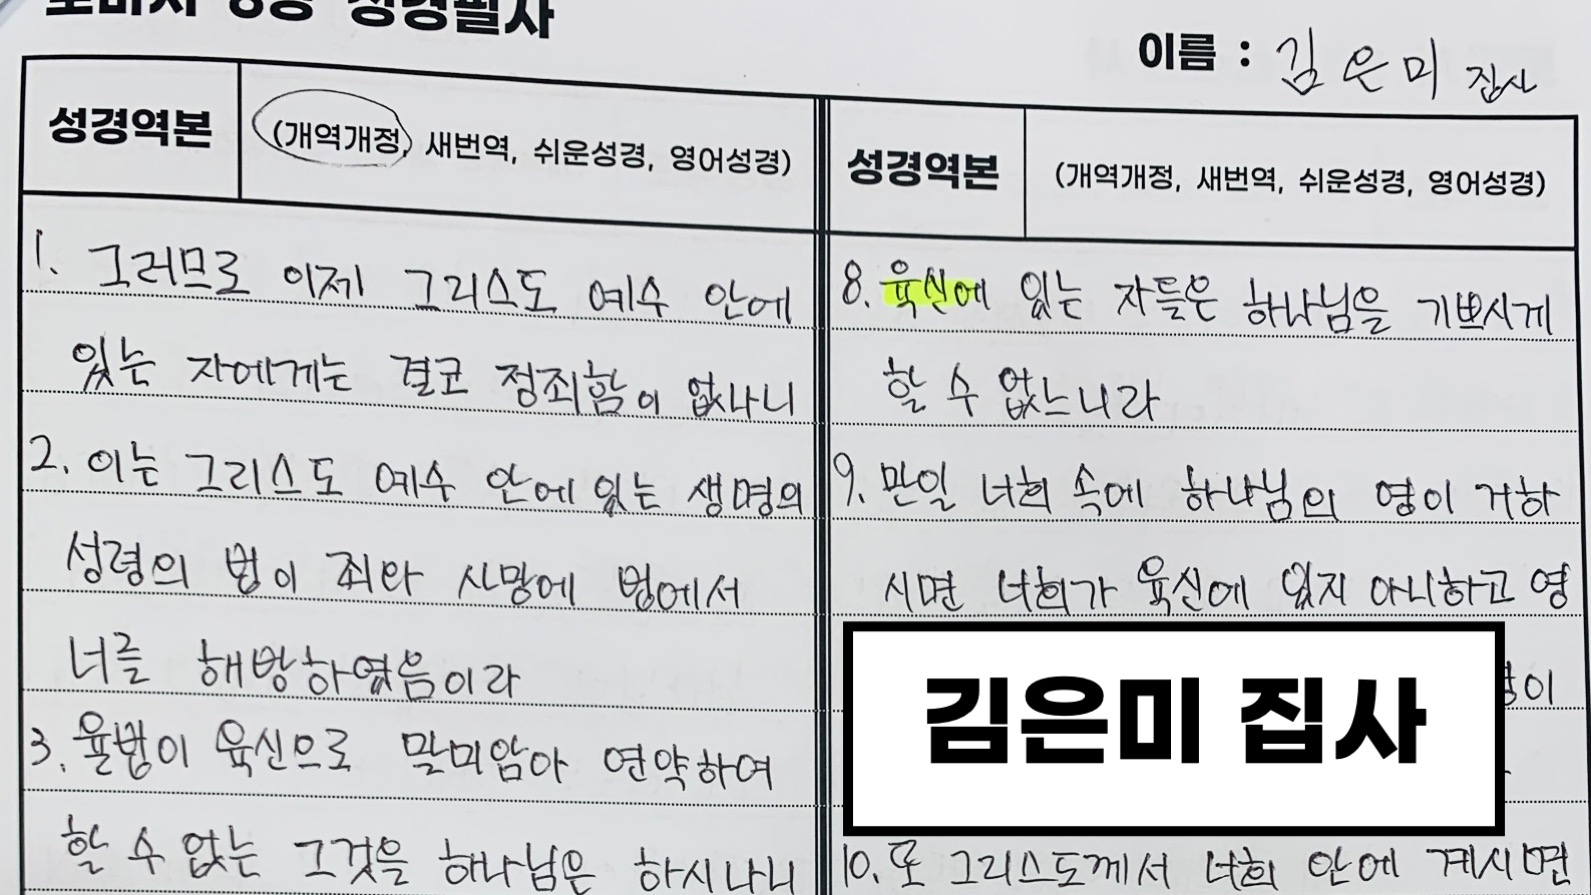 로마서 8장 성경필사
이름 : 김은미 집사
성경역본 (개역개정, 새번역, 쉬운성경, 영어성경)
1. 그러므로 이제 그리스도 예수 안에
있는 자에게는 결코 정죄함이 없나니
2. 이는 그리스도 예수 안에 있는 생명의
성령의 법이 죄와 사망에 법에서
너를 해방하였음이라
3. 율법이 육신으로 말미암아 연약하여
할 수 없는 그것을 하나님은 하시나니
성경역본 (개역개정, 새번역, 쉬운성경, 영어성경)
8. 육신에 있는 자들은 하나님을 기쁘시게
할 수 없느니라
9. 만일 너희 속에 하나님의 영이 거하
시면 너희가 육신에 있지 아니하고 영
김은미 집사
10. 또 그리스도께서 너희 안에 계시면